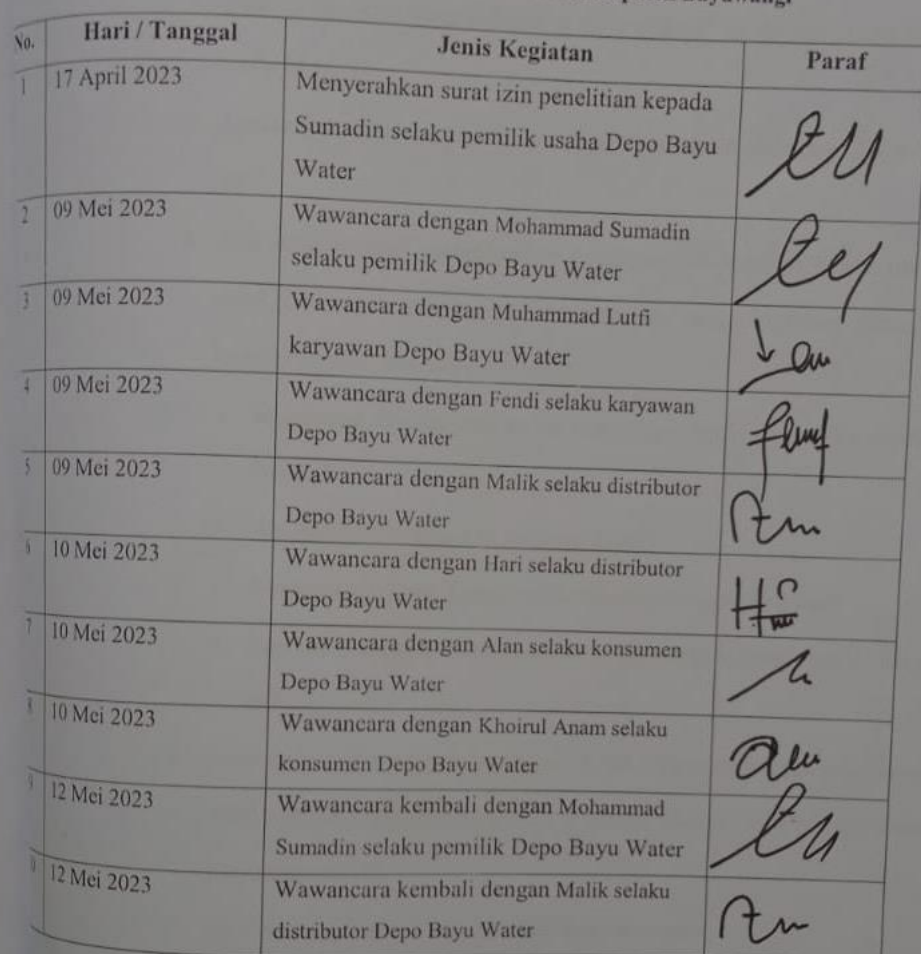 No. Hari / Tanggal Jenis Kegiatan Paraf
1 17 April 2023 Menyerahkan surat izin penelitian kepada
Sumadin selaku pemilik usaha Depo Bayu
Water
2 09 Mei 2023 Wawancara dengan Mohammad Sumadin
selaku pemilik Depo Bayu Water
3 09 Mei 2023 Wawancara dengan Muhammad Lutfi
karyawan Depo Bayu Water
4 09 Mei 2023 Wawancara dengan Fendi selaku karyawan
Depo Bayu Water
5 09 Mei 2023 Wawancara dengan Malik selaku distributor
Depo Bayu Water
6 10 Mei 2023 Wawancara dengan Hari selaku distributor
Depo Bayu Water
7 10 Mei 2023 Wawancara dengan Alan selaku konsumen
Depo Bayu Water
8 10 Mei 2023 Wawancara dengan Khoirul Anam selaku
konsumen Depo Bayu Water
9 12 Mei 2023 Wawancara kembali dengan Mohammad
Sumadin selaku pemilik Depo Bayu Water
12 Mei 2023 Wawancara kembali dengan Malik selaku
distributor Depo Bayu Water